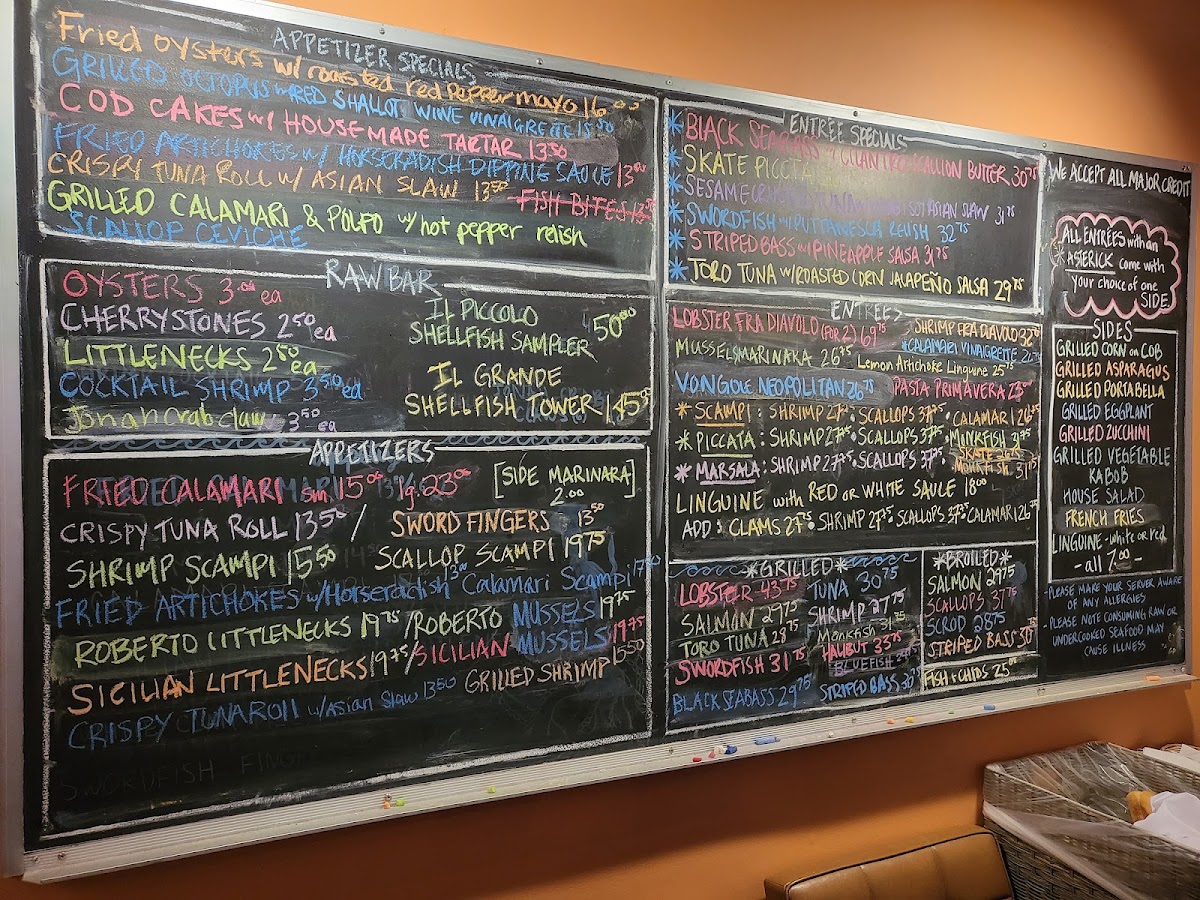 APPETIZER SPECIALS
Fried oysters w/ roasted red pepper mayo 16.00
GRILLED OCTOPUS w/ RED SHALLOT WINE VINAIGRETTE 15.50
COD CAKES w/ HOUSEMADE TARTAR 13.50
FRIED ARTICHOKES w/ HORSERADISH DIPPING SAUCE 13.00
CRISPY TUNA ROLL w/ ASIAN SLAW 13.50 FISH BITES
GRILLED CALAMARI & POLPO w/ hot pepper relish
SCALLOP CEVICHE
RAW BAR
OYSTERS 3.00 ea
CHERRYSTONES 2.50 ea
LITTLENECKS 2.50 ea
COCKTAIL SHRIMP 3.50 ea
Jonah crab claw 3.50
IL PICCOLO
SHELLFISH SAMPLER 50.00
IL GRANDE
SHELLFISH TOWER 145.00
APPETIZERS
FRIED CALAMARI sm. 15.00 lg. 23.00 [SIDE MARINARA]
2.00
CRISPY TUNA ROLL 13.50 / SWORD FINGERS 13.50
SHRIMP SCAMPI 15.50 SCALLOP SCAMPI 19.75
FRIED ARTICHOKES w/ Horseradish 13.00 Calamari Scampi
ROBERTO LITTLENECKS 19.75 / ROBERTO MUSSELS 19.75
SICILIAN LITTLENECKS 19.75 / SICILIAN MUSSELS 19.75
CRISPY TUNA ROLL w/ Asian Slaw 13.50 GRILLED SHRIMP 15.50
SWORDFISH
ENTRÉE SPECIALS
*BLACK SEABASS w/ CILANTRO SCALLION BUTTER 30.75
*SKATE PICCATA
*SESAME TUNA ASIAN SLAW 31.75
*SWORDFISH w/ PUTTANESCA RELISH 32.75
*STRIPED BASS w/ PINEAPPLE SALSA 31.75
*TORO TUNA w/ ROASTED CORN JALAPEÑO SALSA 29.75
ENTRÉES
LOBSTER FRA DIAVOLO (FOR 2) 69.75 SHRIMP FRA DIAVOLO
MUSSELS MARINARA 26.75 *CALAMARI VINAIGRETTE
Lemon Artichoke Linguine 25.75
VONGOLE NEOPOLITAN 26.75 PASTA PRIMAVERA
*SCAMPI: SHRIMP 27.75 • SCALLOPS 37.75 • CALAMARI 26.75
*PICCATA: SHRIMP 27.75 • SCALLOPS 37.75 • MONKFISH 31.75
SKATE
*MARSALA: SHRIMP 27.75 • SCALLOPS 37.75 • Monkfish 31.75
LINGUINE with RED OR WHITE SAUCE 18.00
ADD: CLAMS 27.75 • SHRIMP 27.75 • SCALLOPS 37.75 • CALAMARI 26.75
*GRILLED*
LOBSTER 43.75
SALMON 29.75
TORO TUNA 28.75
SWORDFISH 31.75
BLACK SEABASS 29.75
TUNA 30.75
SHRIMP 27.75
Monkfish 31.75
HALIBUT 33.75
BLUEFISH
STRIPED BASS
*BROILED*
SALMON 29.75
SCALLOPS 37.75
SCROD 28.75
STRIPED BASS
FISH & CHIPS 25.00
WE ACCEPT ALL MAJOR CREDIT
ALL ENTRÉES with an
*ASTERICK come with
your choice of one
SIDE.
SIDES
GRILLED CORN on COB
GRILLED ASPARAGUS
GRILLED PORTABELLA
GRILLED EGGPLANT
GRILLED ZUCCHINI
GRILLED VEGETABLE
KABOB
HOUSE SALAD
FRENCH FRIES
LINGUINE - white or red
- all 7.00 -
- PLEASE MAKE YOUR SERVER AWARE
OF ANY ALLERGIES
- PLEASE NOTE CONSUMING RAW OR
UNDERCOOKED SEAFOOD MAY
CAUSE ILLNESS